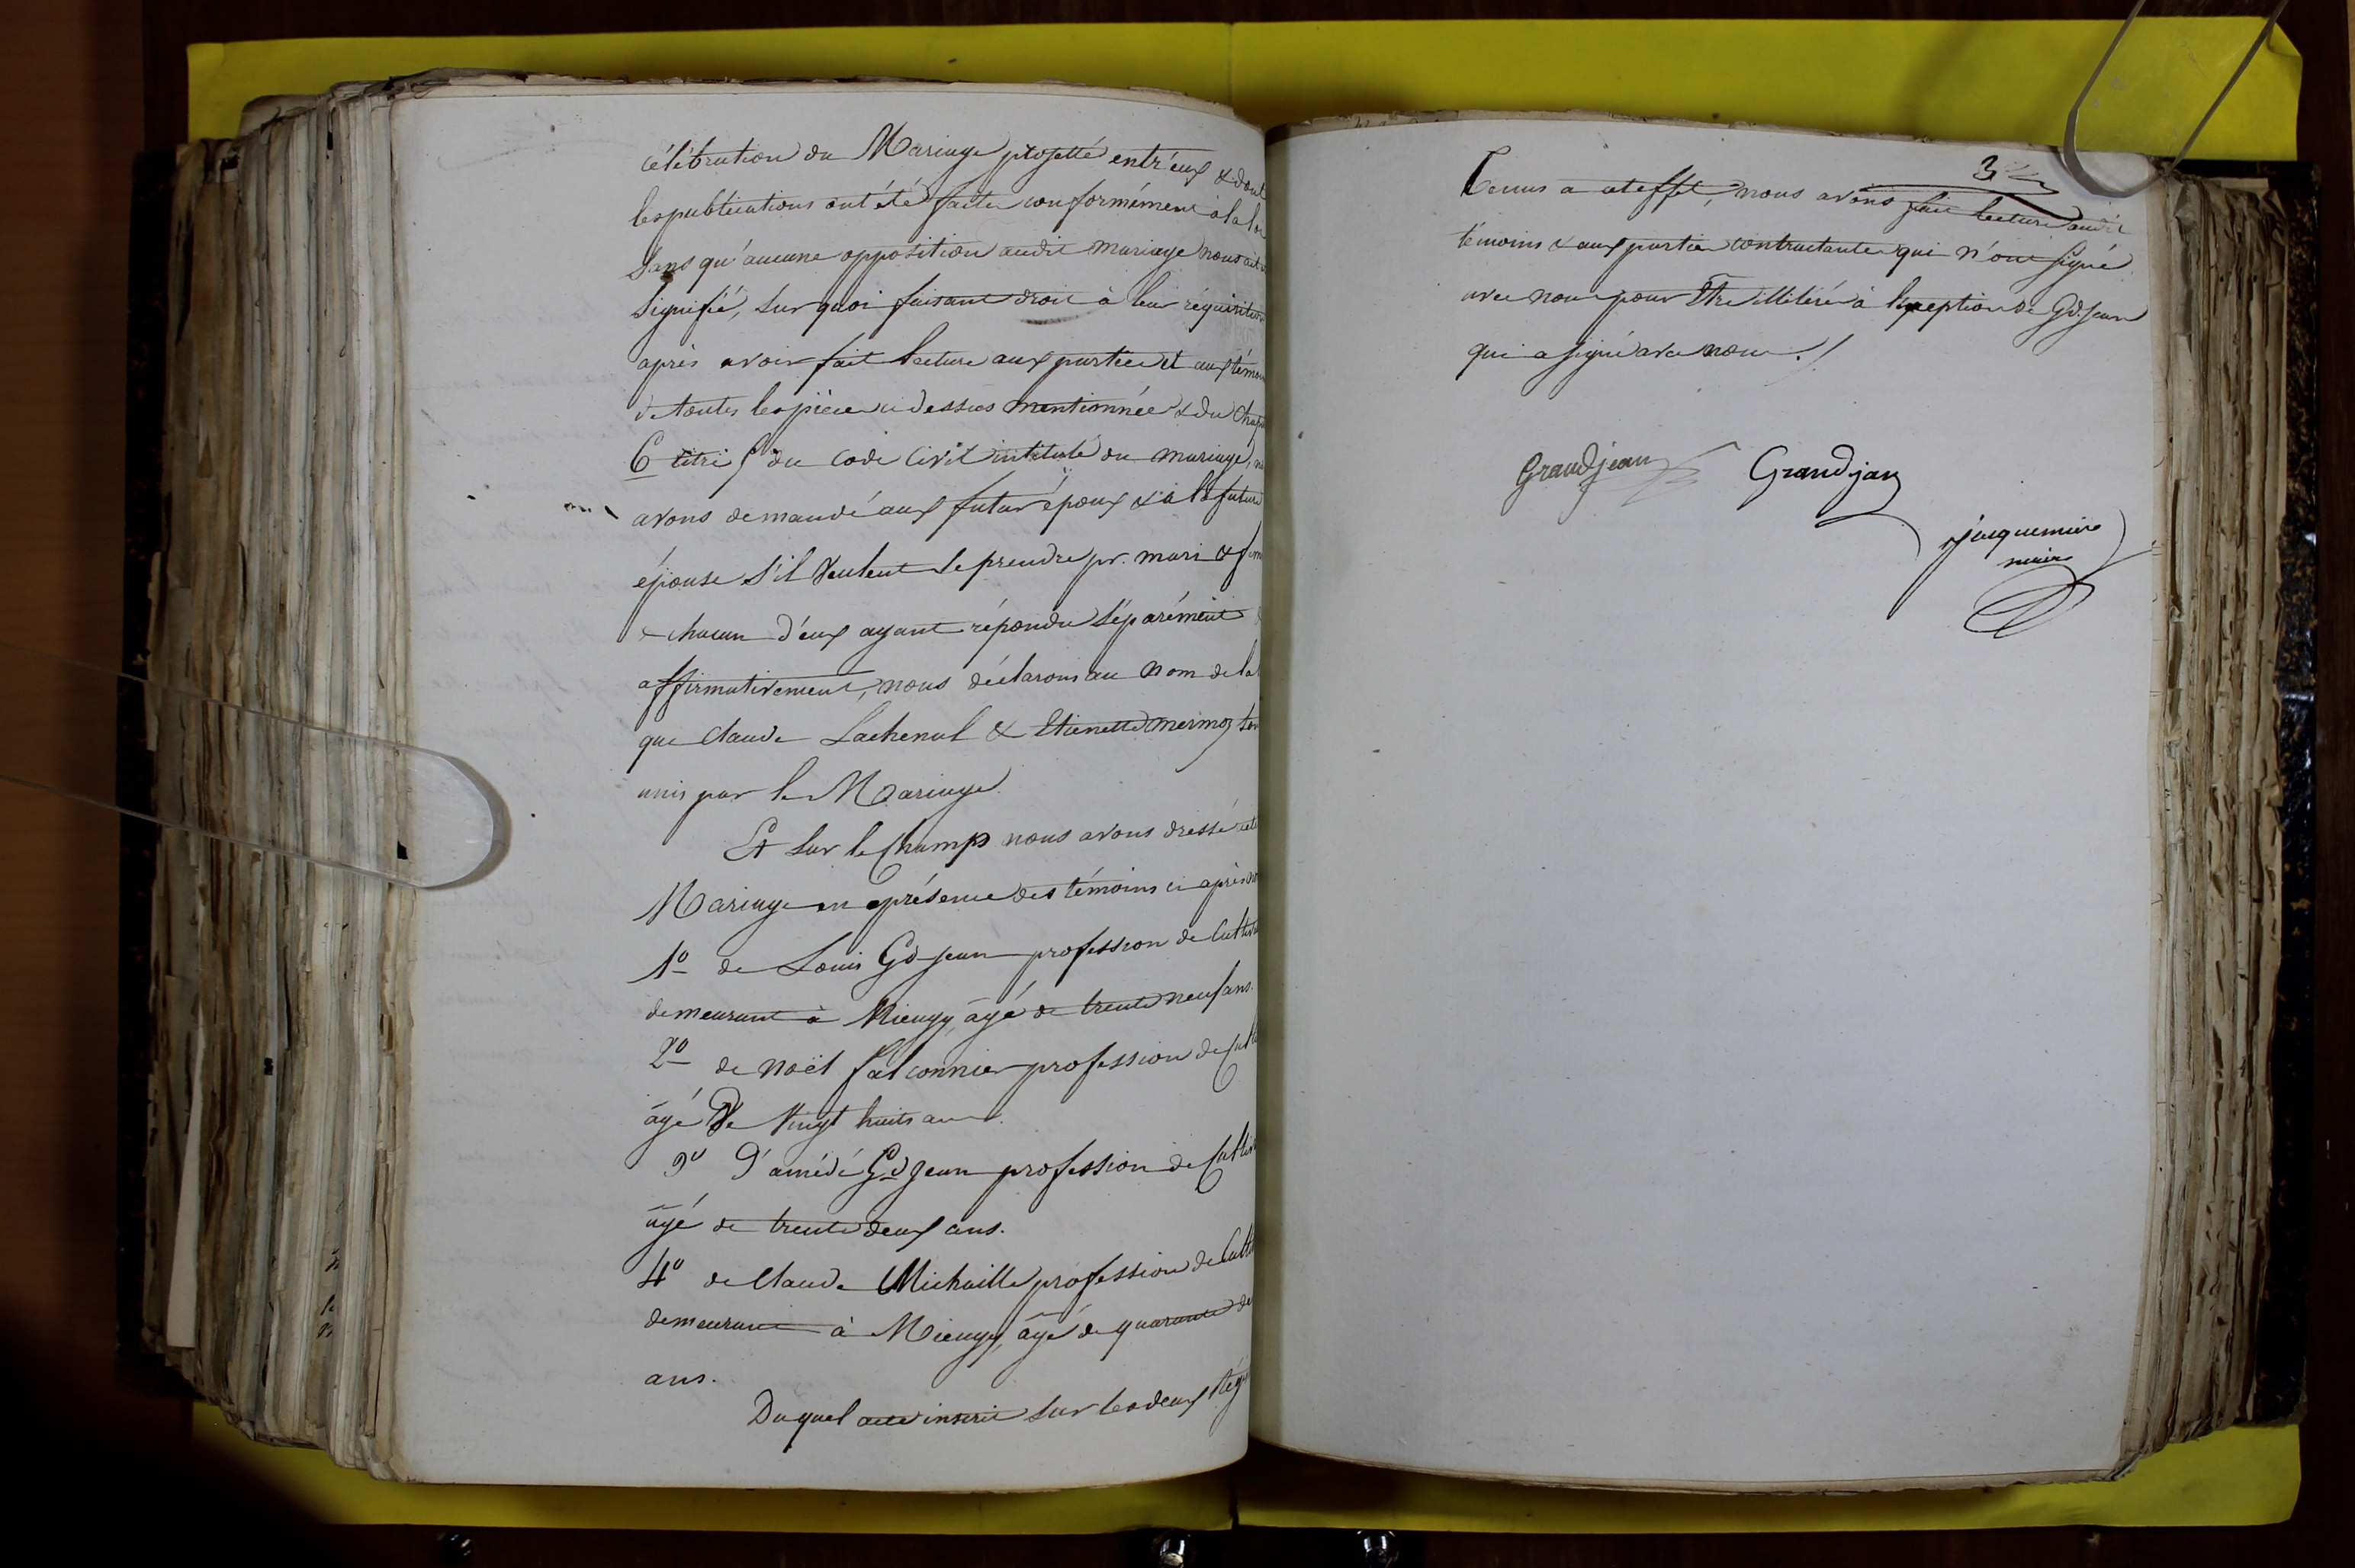 célébration du Mariage projetté entr'eux & dont
les publications ont été faites conformément à la loi
sans qu'aucune opposition audit mariage nous ait
signifié, sur quoi faisant droit à leur réquisition
après avoir fait lecture aux parties et aux témoi
de toutes les pièces ci dessus mentionnées & du Chap
6 titre du Code Civil intitulé du mariage,
avons demandé aux futur époux & à la future
épouse s'il veulent se prendre pr. mari & fem
& chacun d'eux ayant répondu séparément
affirmativement, nous déclarons au nom de la
que Claude Lachenal & Etienette Mermoz son
unis par le Mariage
Et sur le Champs nous avons dressé
Mariage en présence des témoins ci après
1º de Louis Gd-Jean profession de Cultiv
demeurant à Mieugy, âgé de trente neuf ans.
2º de Noël Falconnier profession de Cult
âgé De Vingt huits ans.
3º D'amédé Gd Jean profession de Cultiv
âgé de trente deux ans.
4º de Claude Michaille profession de Cult
demeurant à Mieugy, âgé de quarante de
ans.
Duquel acte inscrit sur les deux Rég
3
Tenus a cet effet, nous avons fait lecture audit
témoins & aux parties contractantes qui n'ont signé
avec nous pour être illitérés à l'exception de Gd. Jean
qui a signé avec nous ./
Grandjean Grandjan
Jacquemire
maire